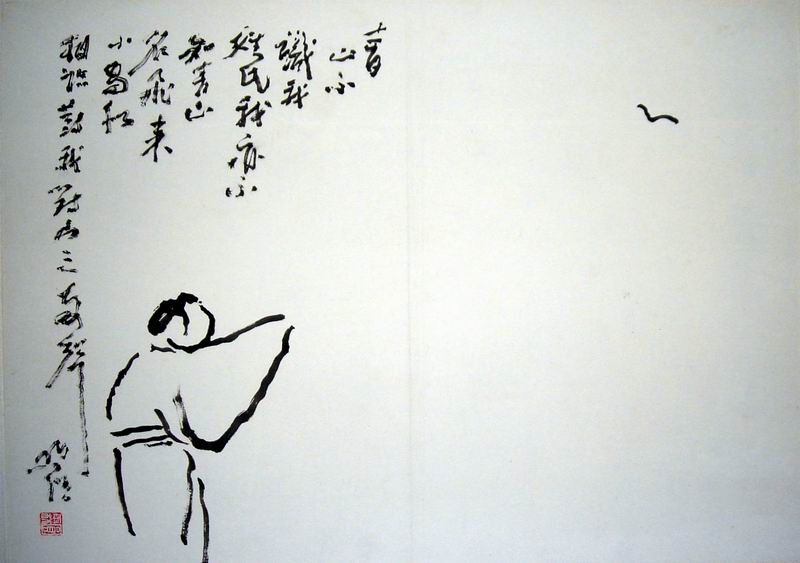 青
山不
識我
姓氏我亦不
知青山
名飛來
小鳥似
相識對我對山三兩聲